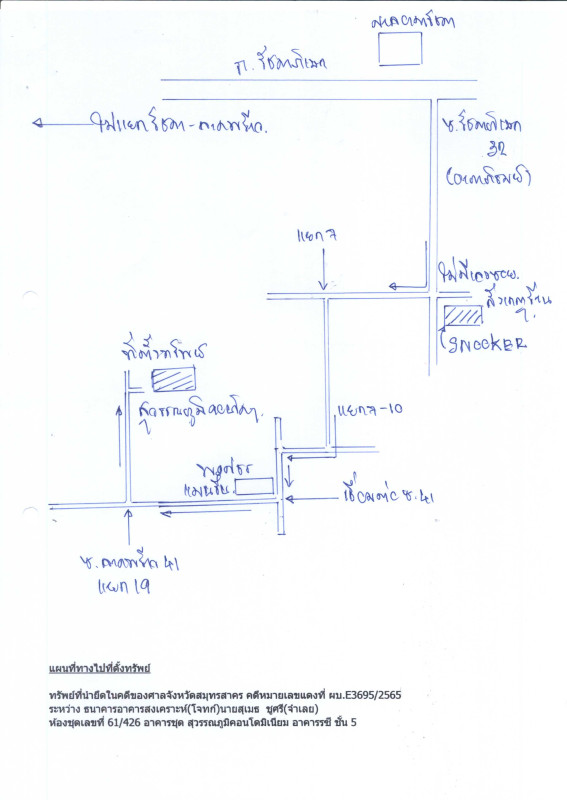 ศาลอาญารัชดา
ถ. รัชดาภิเษก
ไปแยกรัชดา-ลาดพร้าว.
ซ.รัชดาภิเษก
32
(อาภาภิรมย์)
แยก 7
ไม่มีเลขซอย.
สังเกตร้าน
SNOOKER
ที่ตั้งทรัพย์
สุวรรณภูมิคอนโด.
แยก 7-10
แมนชั่น.
เชื่อมต่อ ซ. 41
ซ. ลาดพร้าว 41
แยก 19
แผนที่ทางไปที่ตั้งทรัพย์
ทรัพย์ที่นำยึดในคดีของศาลจังหวัดสมุทรสาคร คดีหมายเลขแดงที่ ผบ.E3695/2565
ระหว่าง ธนาคารอาคารสงเคราะห์(โจทก์)นายสุเมธ ชูศรี(จำเลย)
ห้องชุดเลขที่ 61/426 อาคารชุด สุวรรณภูมิคอนโดมิเนียม อาคารรซี ชั้น 5